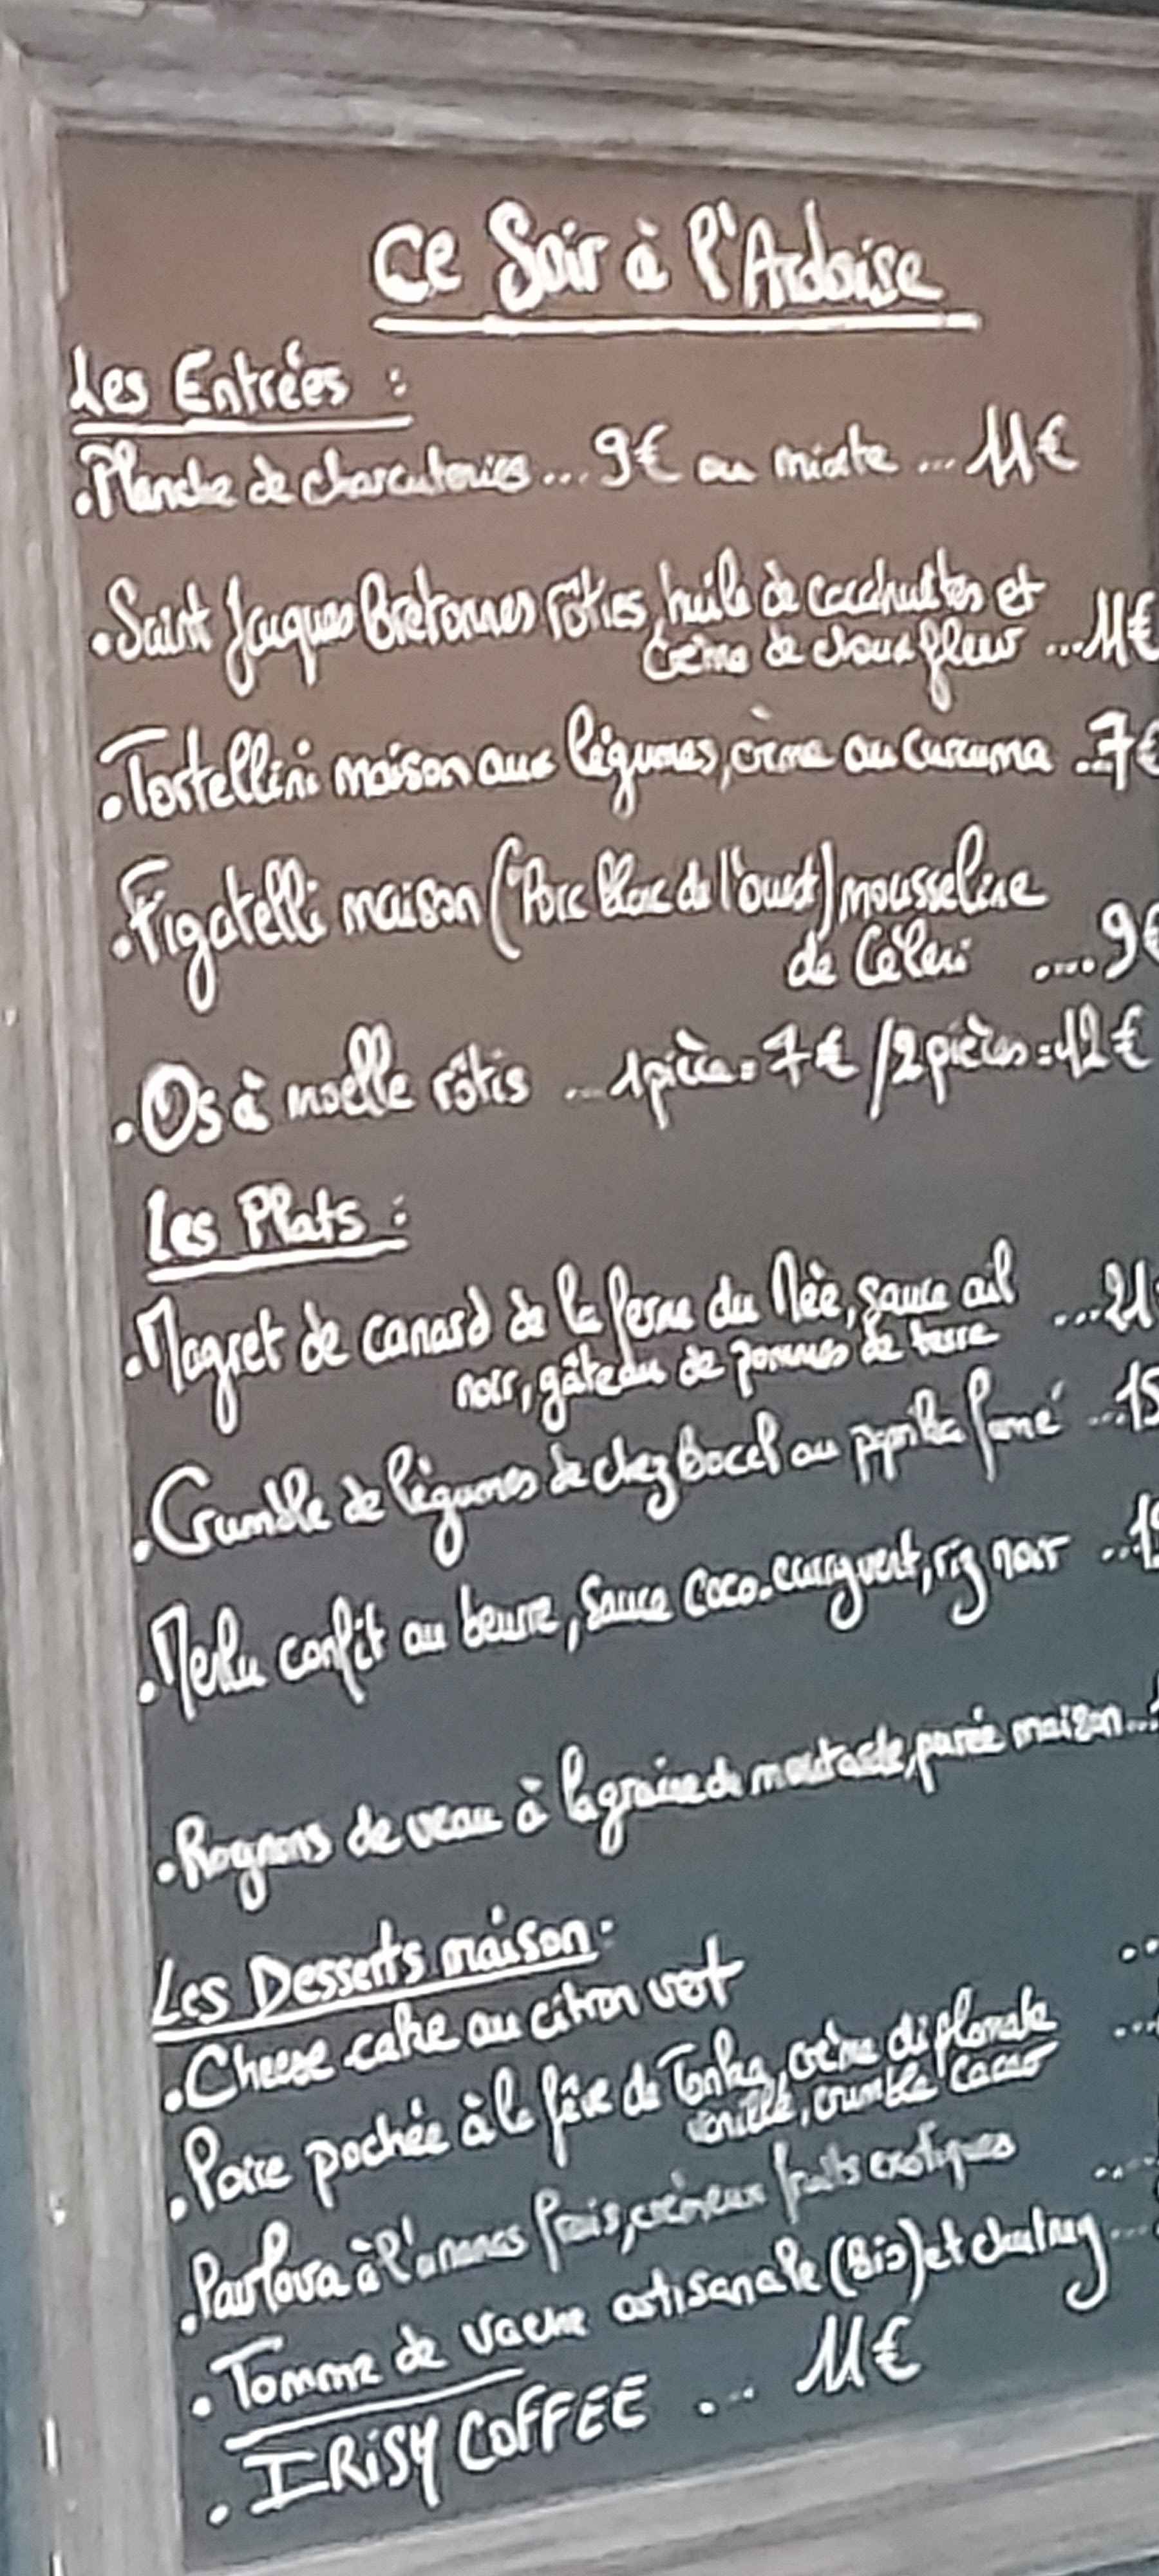 Ce Soir à l'Ardoise
Les Entrées :
•Planche de charcuteries ... 9€ ou mixte ... 11€
•Saint Jacques Bretonnes rôties, huile de cacahuètes et
crème de choux fleur ... 11€
•Tortellini maison aux légumes, crème au curcuma ... 7€
•Figatelli maison (Porc blanc de l'ouest) mousseline
de Céleri .... 9€
•Os à moelle rôtis ... 1 pièce = 7€ / 2 pièces = 12€
Les Plats :
•Magret de canard de la ferme du Née, sauce ail ... 21
noir, gâteau de pommes de terre
•Crumble de légumes de chez Bocel au paprika fumé ... 15
•Merlu confit au beurre, Sauce coco-curry vert, riz noir ...
•Rognons de veau à la graine de moutarde, purée maison ...
Les Desserts maison :
•Cheese-cake au citron vert ..
•Poire pochée à la fève de Tonka, crème diplomate ...
vanille, crumble cacao
•Pavlova à l'ananas frais, crémeux fruits exotiques ....
•Tomme de vache artisanale (Bio) et chutney ...
•IRISH COFFEE ... 11€